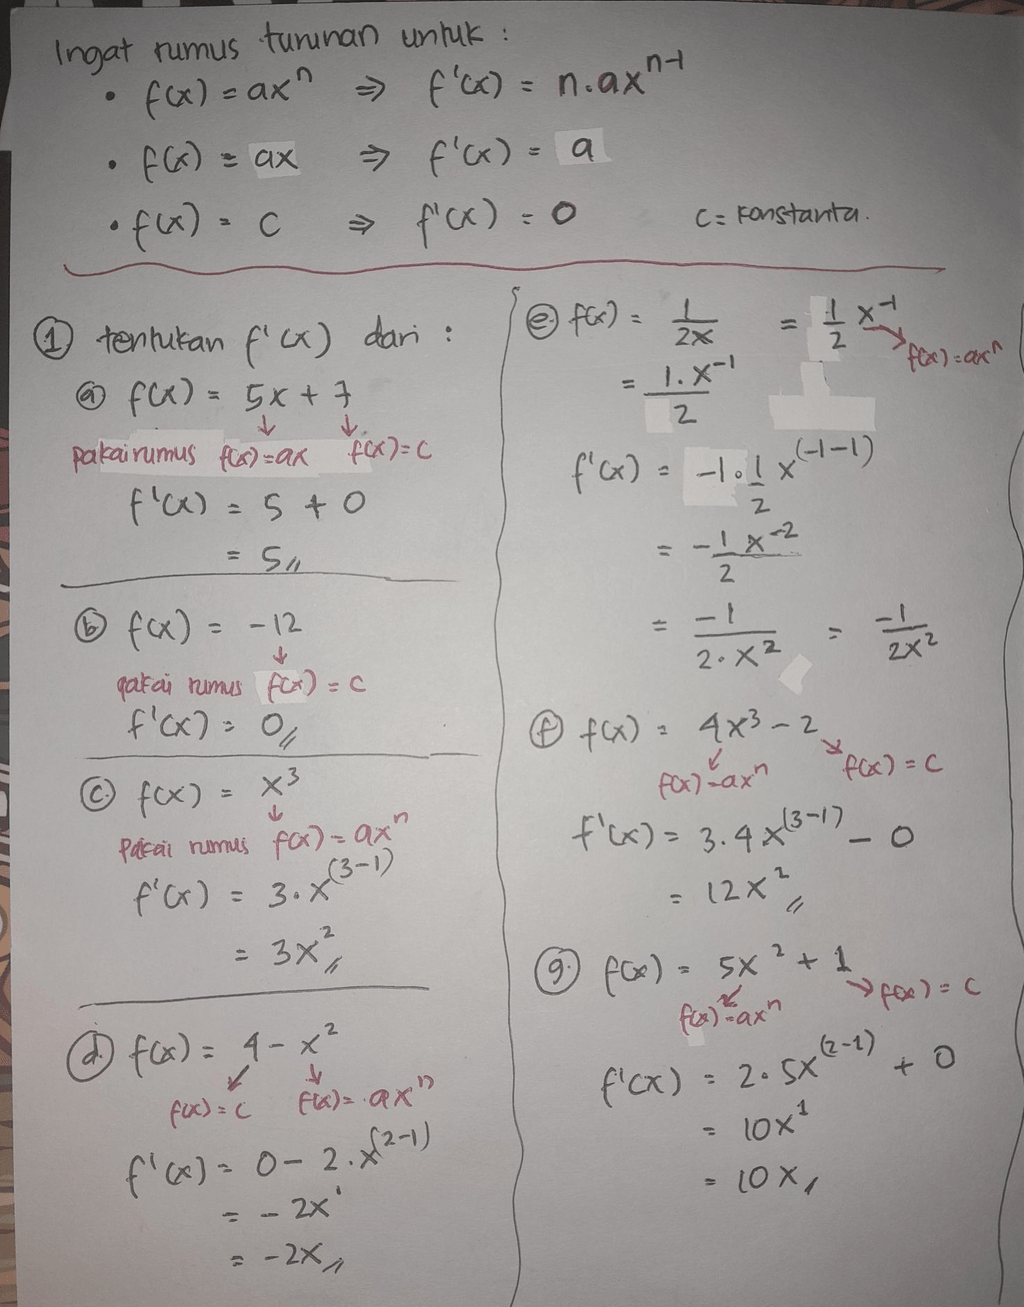 Ingat rumus turunan untuk :
• f(x) = ax^n ⇒ f'(x) = n.ax^(n-1)
• f(x) = ax ⇒ f'(x) = a
• f(x) = c ⇒ f'(x) = 0 c = konstanta.
① tentukan f'(x) dari :
ⓐ f(x) = 5x + 7
↓ ↓
pakai rumus f(x)=ax f(x)=c
f'(x) = 5 + 0
= 5//
ⓑ f(x) = -12
↓
pakai rumus f(x) = c
f'(x) = 0//
ⓒ f(x) = x³
↓
pakai rumus f(x) = ax^n
f'(x) = 3.x^(3-1)
= 3x²//
ⓓ f(x) = 4 - x²
↙ ↓
f(x)=c f(x)=ax^n
f'(x) = 0 - 2.x^(2-1)
= -2x¹
= -2x//
ⓔ f(x) = 1/2x = 1/2 x^-1
↘ f(x)=ax^n
= 1.x^-1/2
f'(x) = -1.1/2 x^(-1-1)
= -1/2 x^-2
= -1/2.x² = -1/2x²
ⓕ f(x) = 4x³ - 2
↙ ↘
f(x)=ax^n f(x)=c
f'(x) = 3.4x^(3-1) - 0
= 12x²//
ⓖ f(x) = 5x² + 1
↙ ↘
f(x)=ax^n f(x)=c
f'(x) = 2.5x^(2-1) + 0
= 10x¹
= 10x/